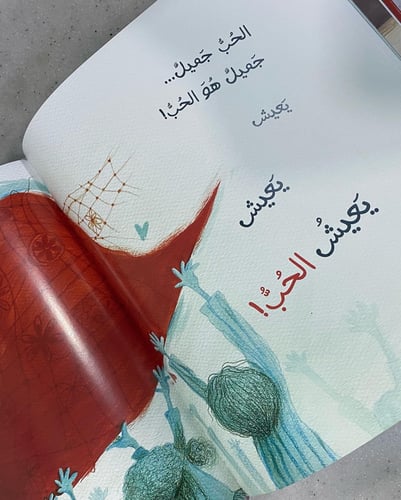 الحُبُّ جَميلٌ...
جَميلٌ هُوَ الحُبُّ!
يَعيش
يَعيش
يَعيشُ الحُبُّ!